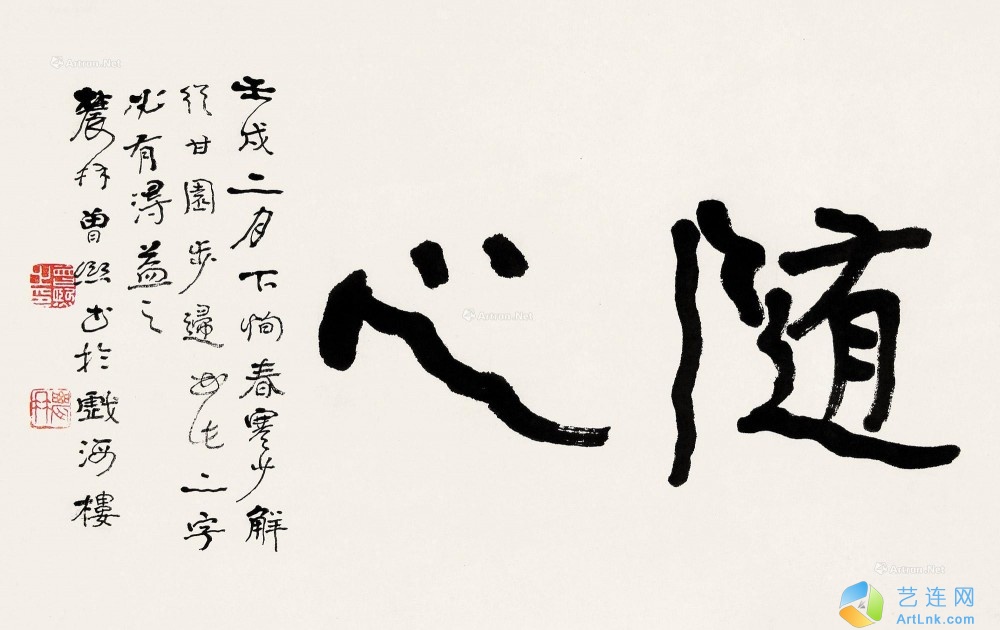 随心
壬戌二月下恂春寒少解
從甘園步還 此二字
必有得益之
農髯曾熙書於戲海樓
Artron.Net
Artron.Net
Artron.Net
Artron.Net
艺连网
ArtLnk.com